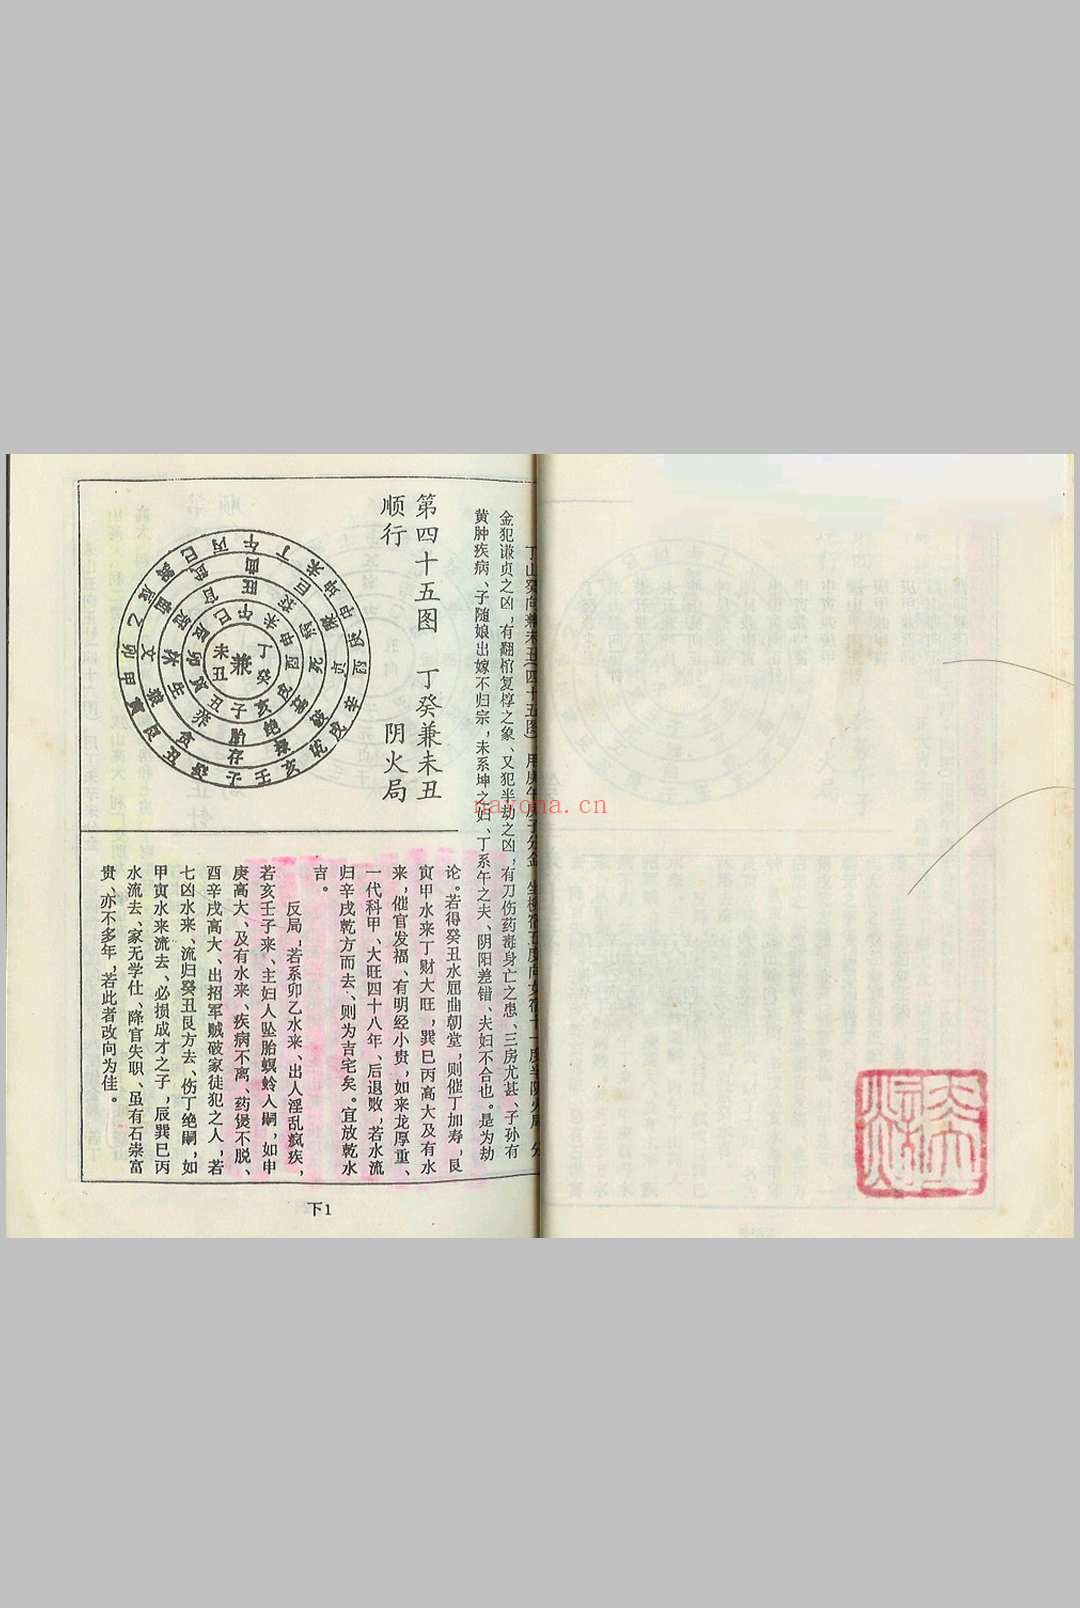 第四十五图 丁癸兼未丑
顺行 阴火局
丁山癸向兼未丑(四十五图)
金犯谦贞之凶,有翻棺复椁之象、又犯半劫之凶,有刀伤药毒身亡之患、三房尤甚、子孙有
黄肿疾病、子随娘出嫁不归宗,未系坤之妇、丁系午之夫、阴阳差错、夫妇不合也。是为劫
论。若得癸丑水屈曲朝堂,则催丁加寿,艮
寅甲水来丁财大旺,巽巳丙高大及有水
来,催官发福、有明经小贵,如来龙厚重、
一代科甲、大旺四十八年、后退败,若水流
归辛戌乾方而去、则为吉宅矣。宜放乾水
吉。
反局,若系卯乙水来、出人淫乱疯疾,
若亥壬子来、主妇人坠胎螟蛉入嗣,如申
庚高大、及有水来、疾病不离、药煲不脱、
酉辛戌高大、出招军贼破家徒犯之人,若
七凶水来、流归癸丑艮方去、伤丁绝嗣,如
甲寅水来流去、必损成才之子,辰巽巳丙
水流去、家无学仕、降官失职、虽有石崇富
贵、亦不多年,若此者改向为佳。
兼
丁癸
未丑
午未申酉戌亥子丑寅卯辰巳
旺衰病死墓绝胎养生沐冠官
午丁未坤申庚酉辛戌乾亥壬子癸丑艮寅甲卯乙辰巽巳丙
下1
nayona.cn